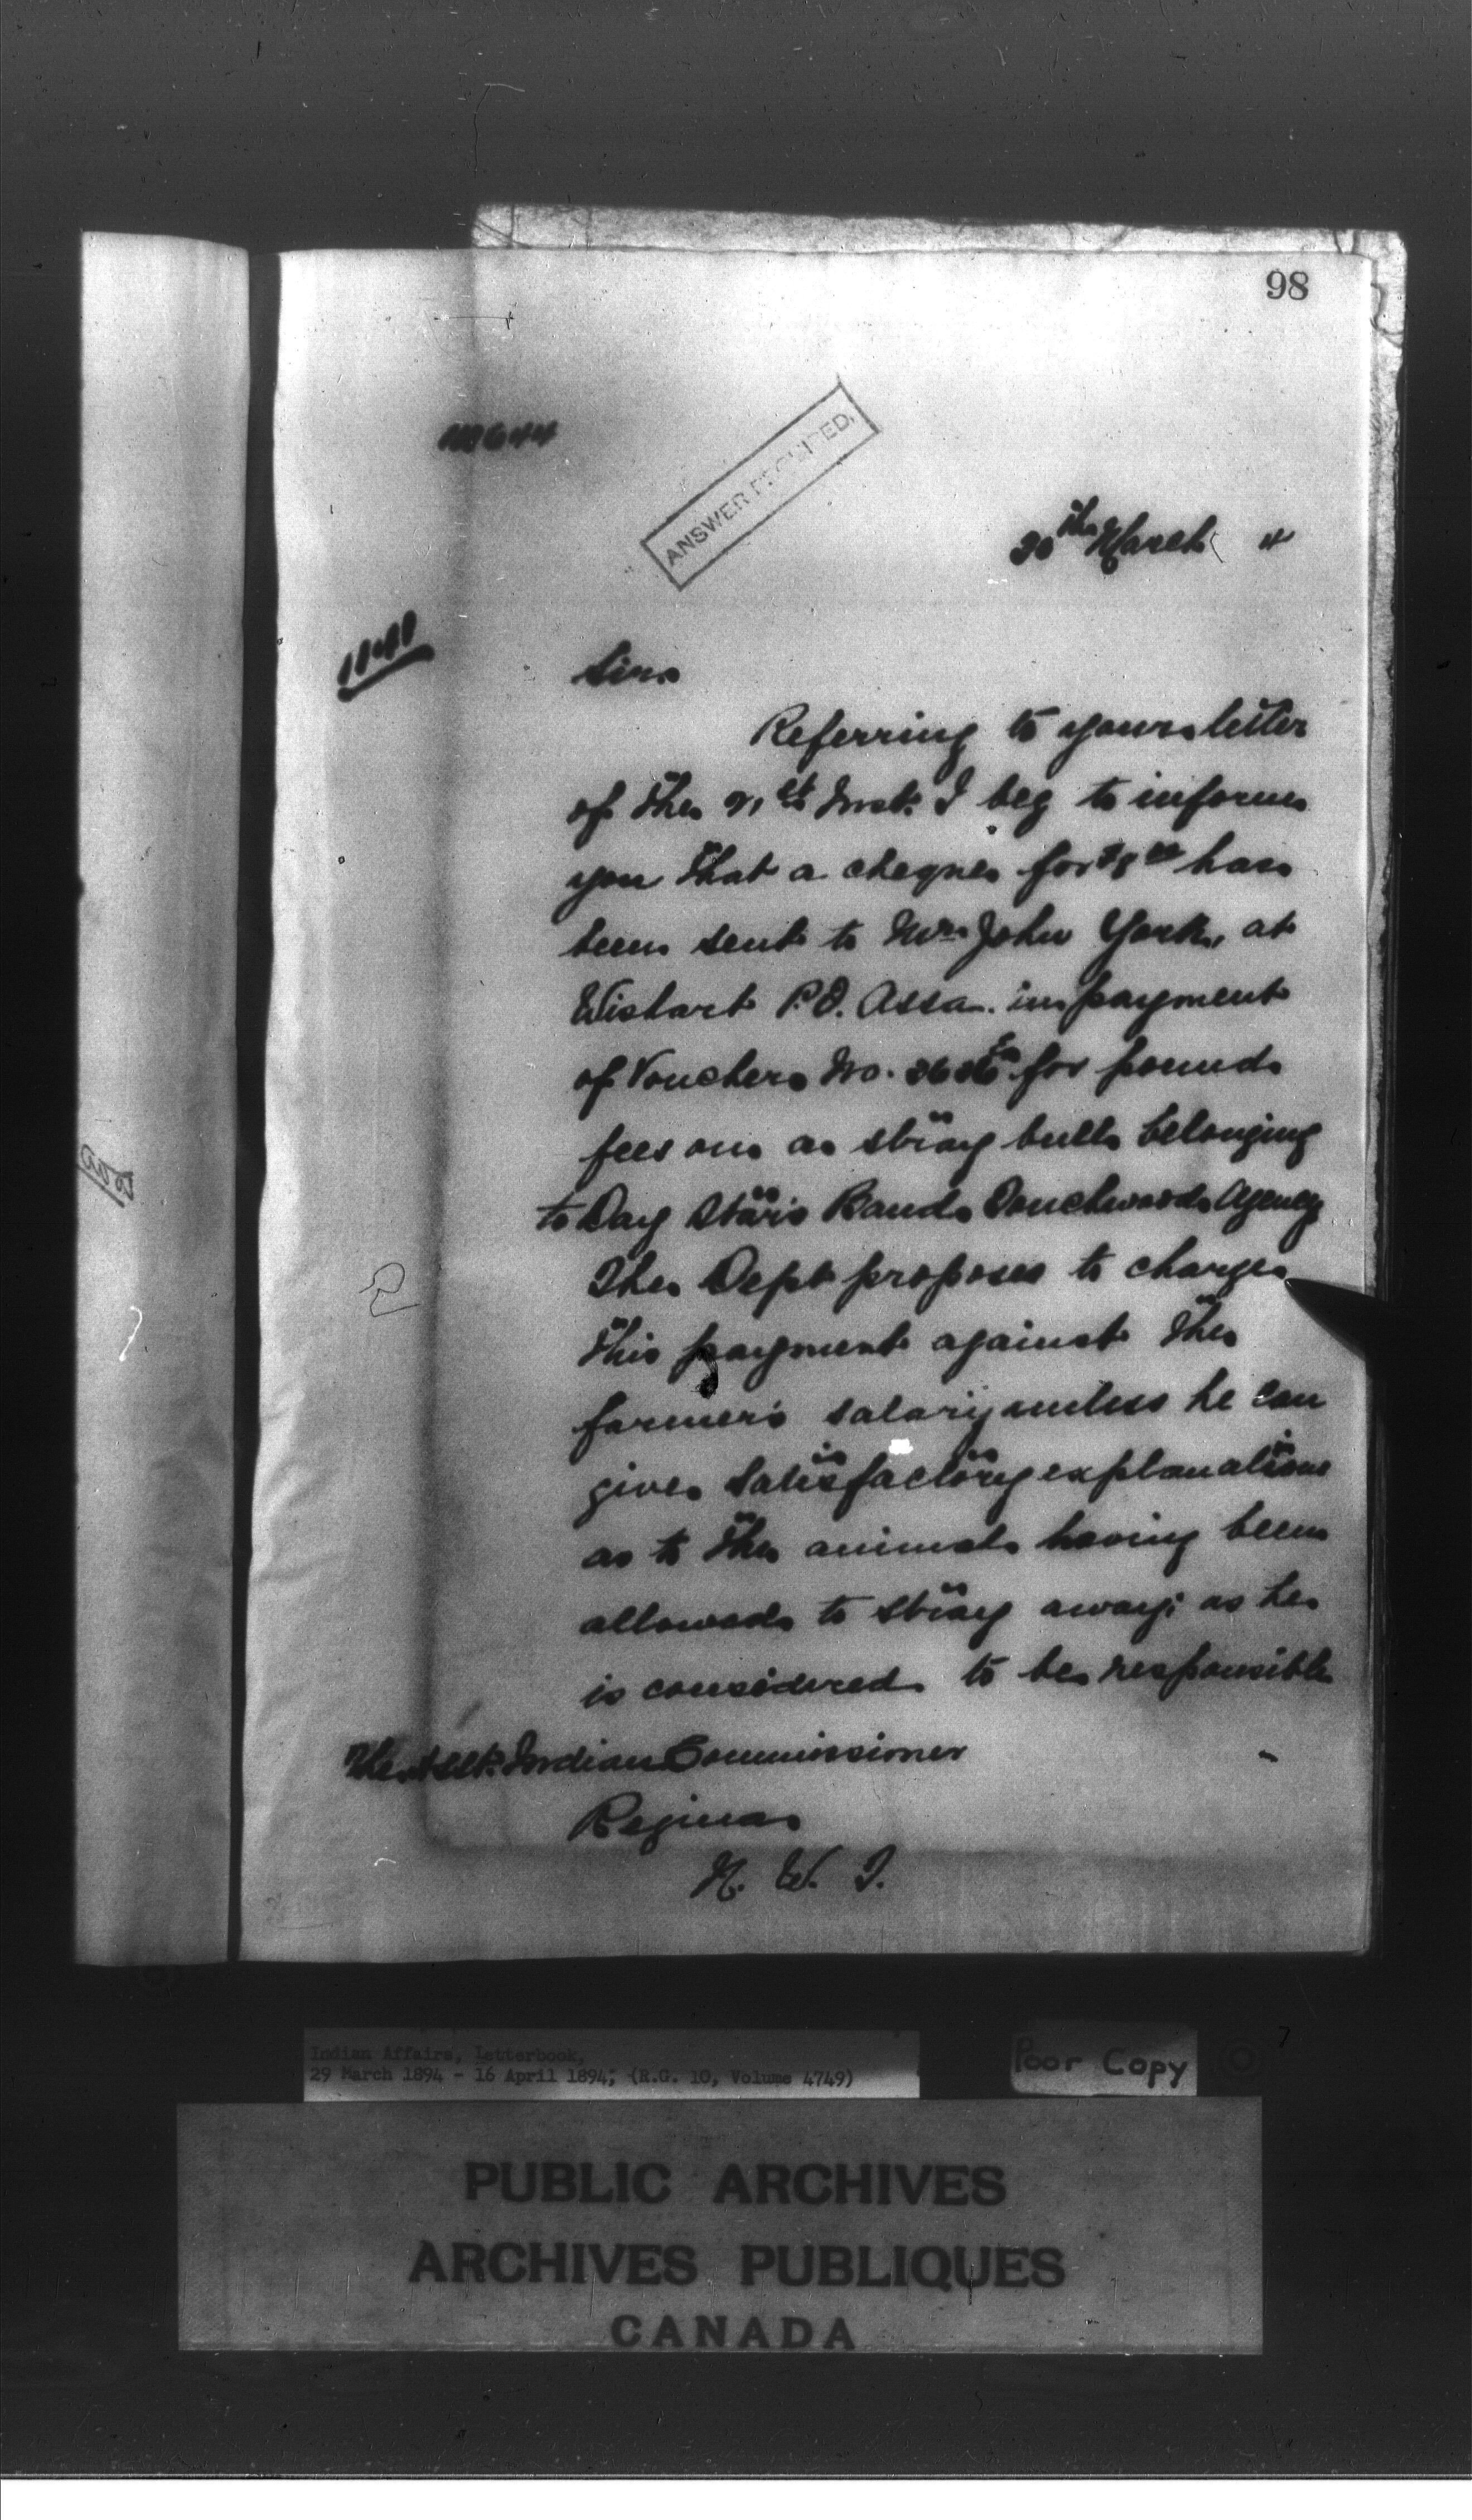 98
ANSWER REQUIRED.
30th March "
Sir,
Referring to your letter
of the 21st Inst. I beg to inform
you that a cheque for $8 00 has
been sent to Mr. John York, at
Wishart P.O. Assa. in payment
of Voucher No. for pound
fees on a stray bull belonging
to Day Star's Band, Touchwood Agency
The Dept proposes to charge
this payment against the
farmer's salary unless he can
give satisfactory explanations
as to the animals having been
allowed to stray away; as he
is considered to be responsible
The Asst. Indian Commissioner
Regina
N. W. T.
Indian Affairs, Letterbook,
29 March 1894 - 16 April 1894; (R.G. 10, Volume 4749)
Poor Copy
PUBLIC ARCHIVES
ARCHIVES PUBLIQUES
CANADA